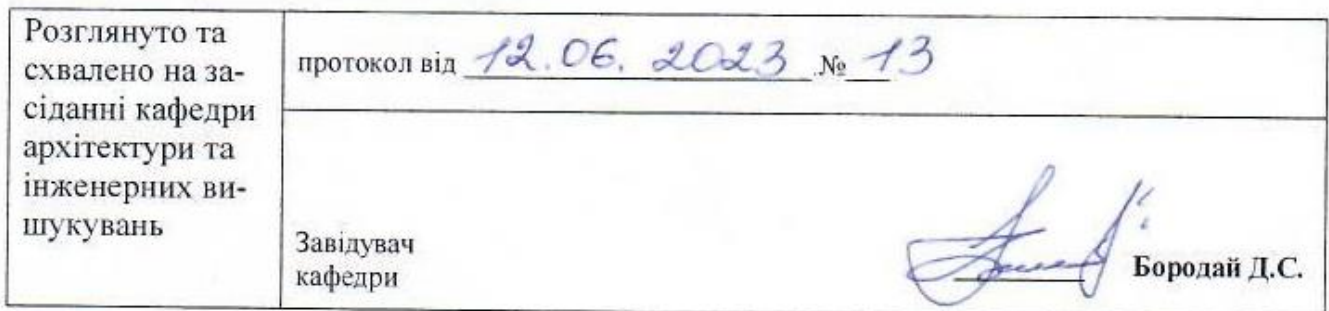 Розглянуто та
схвалено на за-
сіданні кафедри
архітектури та
інженерних ви-
шукувань
протокол від 12.06.2023 № 13
Завідувач
кафедри
Бородай Д.С.